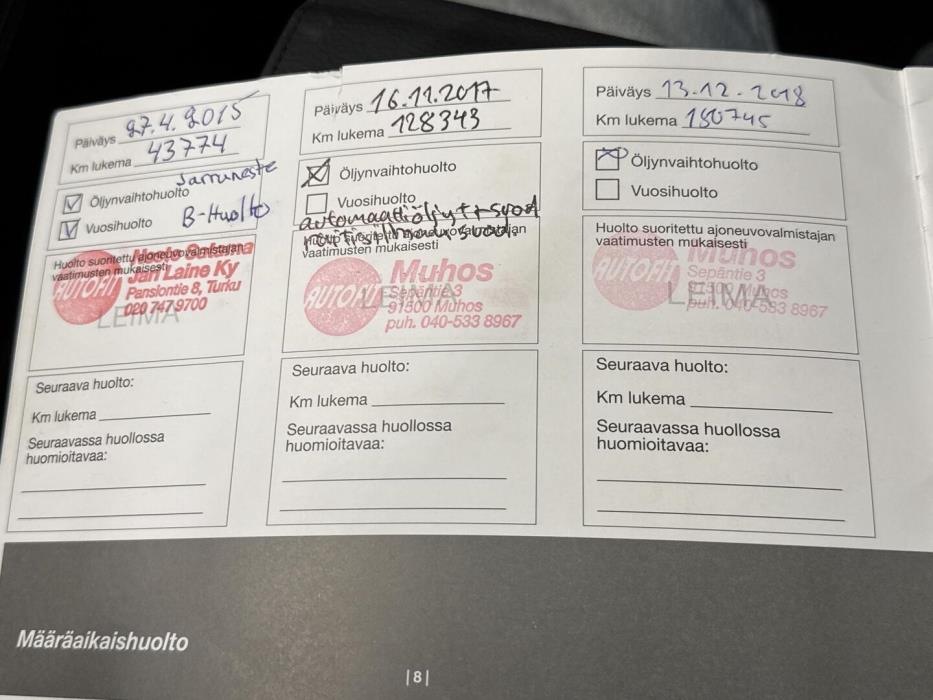 Päiväys 27.4.2015
Km lukema 43774
Jarruneste
Öljynvaihtohuolto
Vuosihuolto B-Huolto
Huolto suoritettu ajoneuvovalmistajan
vaatimusten mukaisesti
AUTOFIT Jan Laine Ky
Pansiontie 8, Turku
020 747 9700
LEIMA
Seuraava huolto:
Km lukema
Seuraavassa huollossa
huomioitavaa:
Päiväys 16.11.2017
Km lukema 128343
Öljynvaihtohuolto
Vuosihuolto
automaattiöljyt + suod
Huolto suoritettu ajoneuvovalmistajan
vaatimusten mukaisesti
AUTOFIT Muhos
Sepäntie 3
91500 Muhos
puh. 040-533 8967
LEIMA
Seuraava huolto:
Km lukema
Seuraavassa huollossa
huomioitavaa:
Päiväys 13.12.2018
Km lukema 150745
Öljynvaihtohuolto
Vuosihuolto
Huolto suoritettu ajoneuvovalmistajan
vaatimusten mukaisesti
AUTOFIT Muhos
Sepäntie 3
91500 Muhos
puh. 040-533 8967
LEIMA
Seuraava huolto:
Km lukema
Seuraavassa huollossa
huomioitavaa:
Määräaikaishuolto
|8|